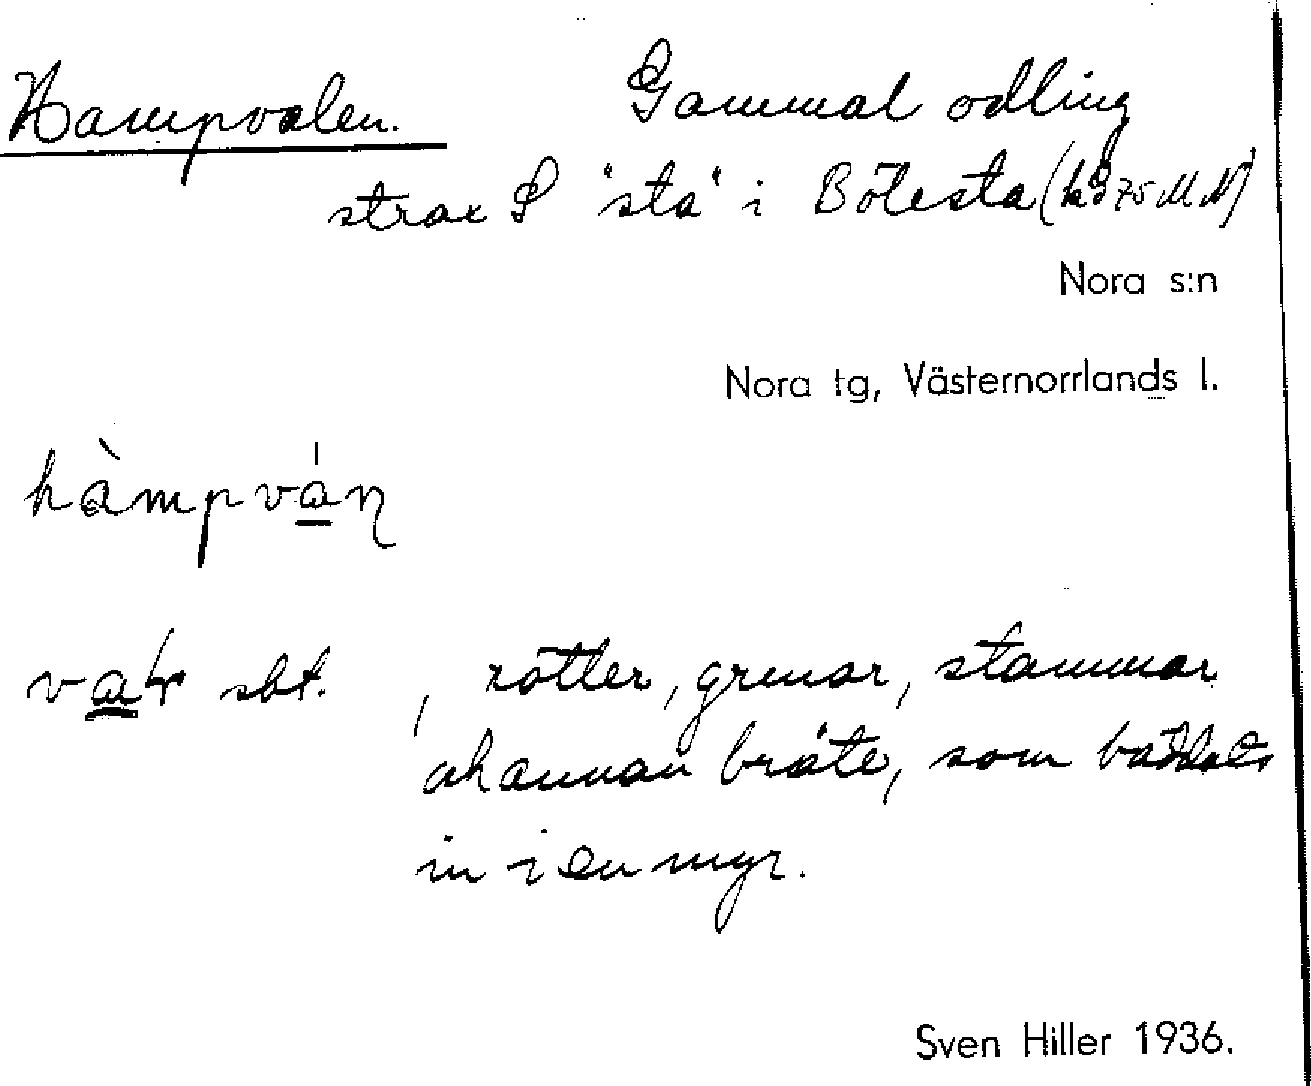 Hampvalen. Gammal odling
strax S "sta" i Bölesta (kø 75 M N)
Nora s:n
Nora tg, Västernorrlands l.
hàmpván
val sbt. , rötter, grenar, stammar
ah annan bråte, som bäddats
in i en myr.
Sven Hiller 1936.